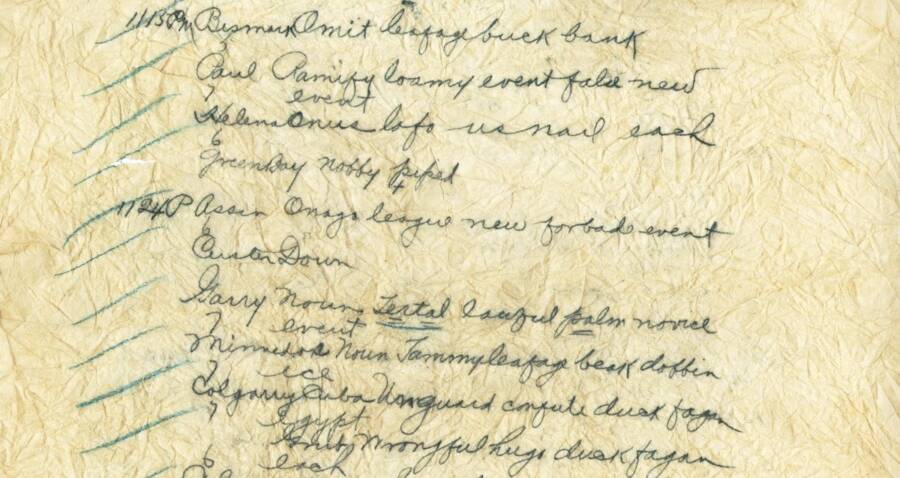 1113 Pm Bismark Omit leafage buck bank
Paul Ramify loamy event false new
event
Helena Onus lofo us nail each
Green Bay nobby piped
1124 P Assin Onago league new forbade event
Custer Down
Garry Noun Tertal lawful palm novice
event
Minnedos Noun Jammy leafage beak dobbin
ice
Calgarry Cuba Unguard confute duck fagan
Egypt
Wrongful hugo duck fagan
each